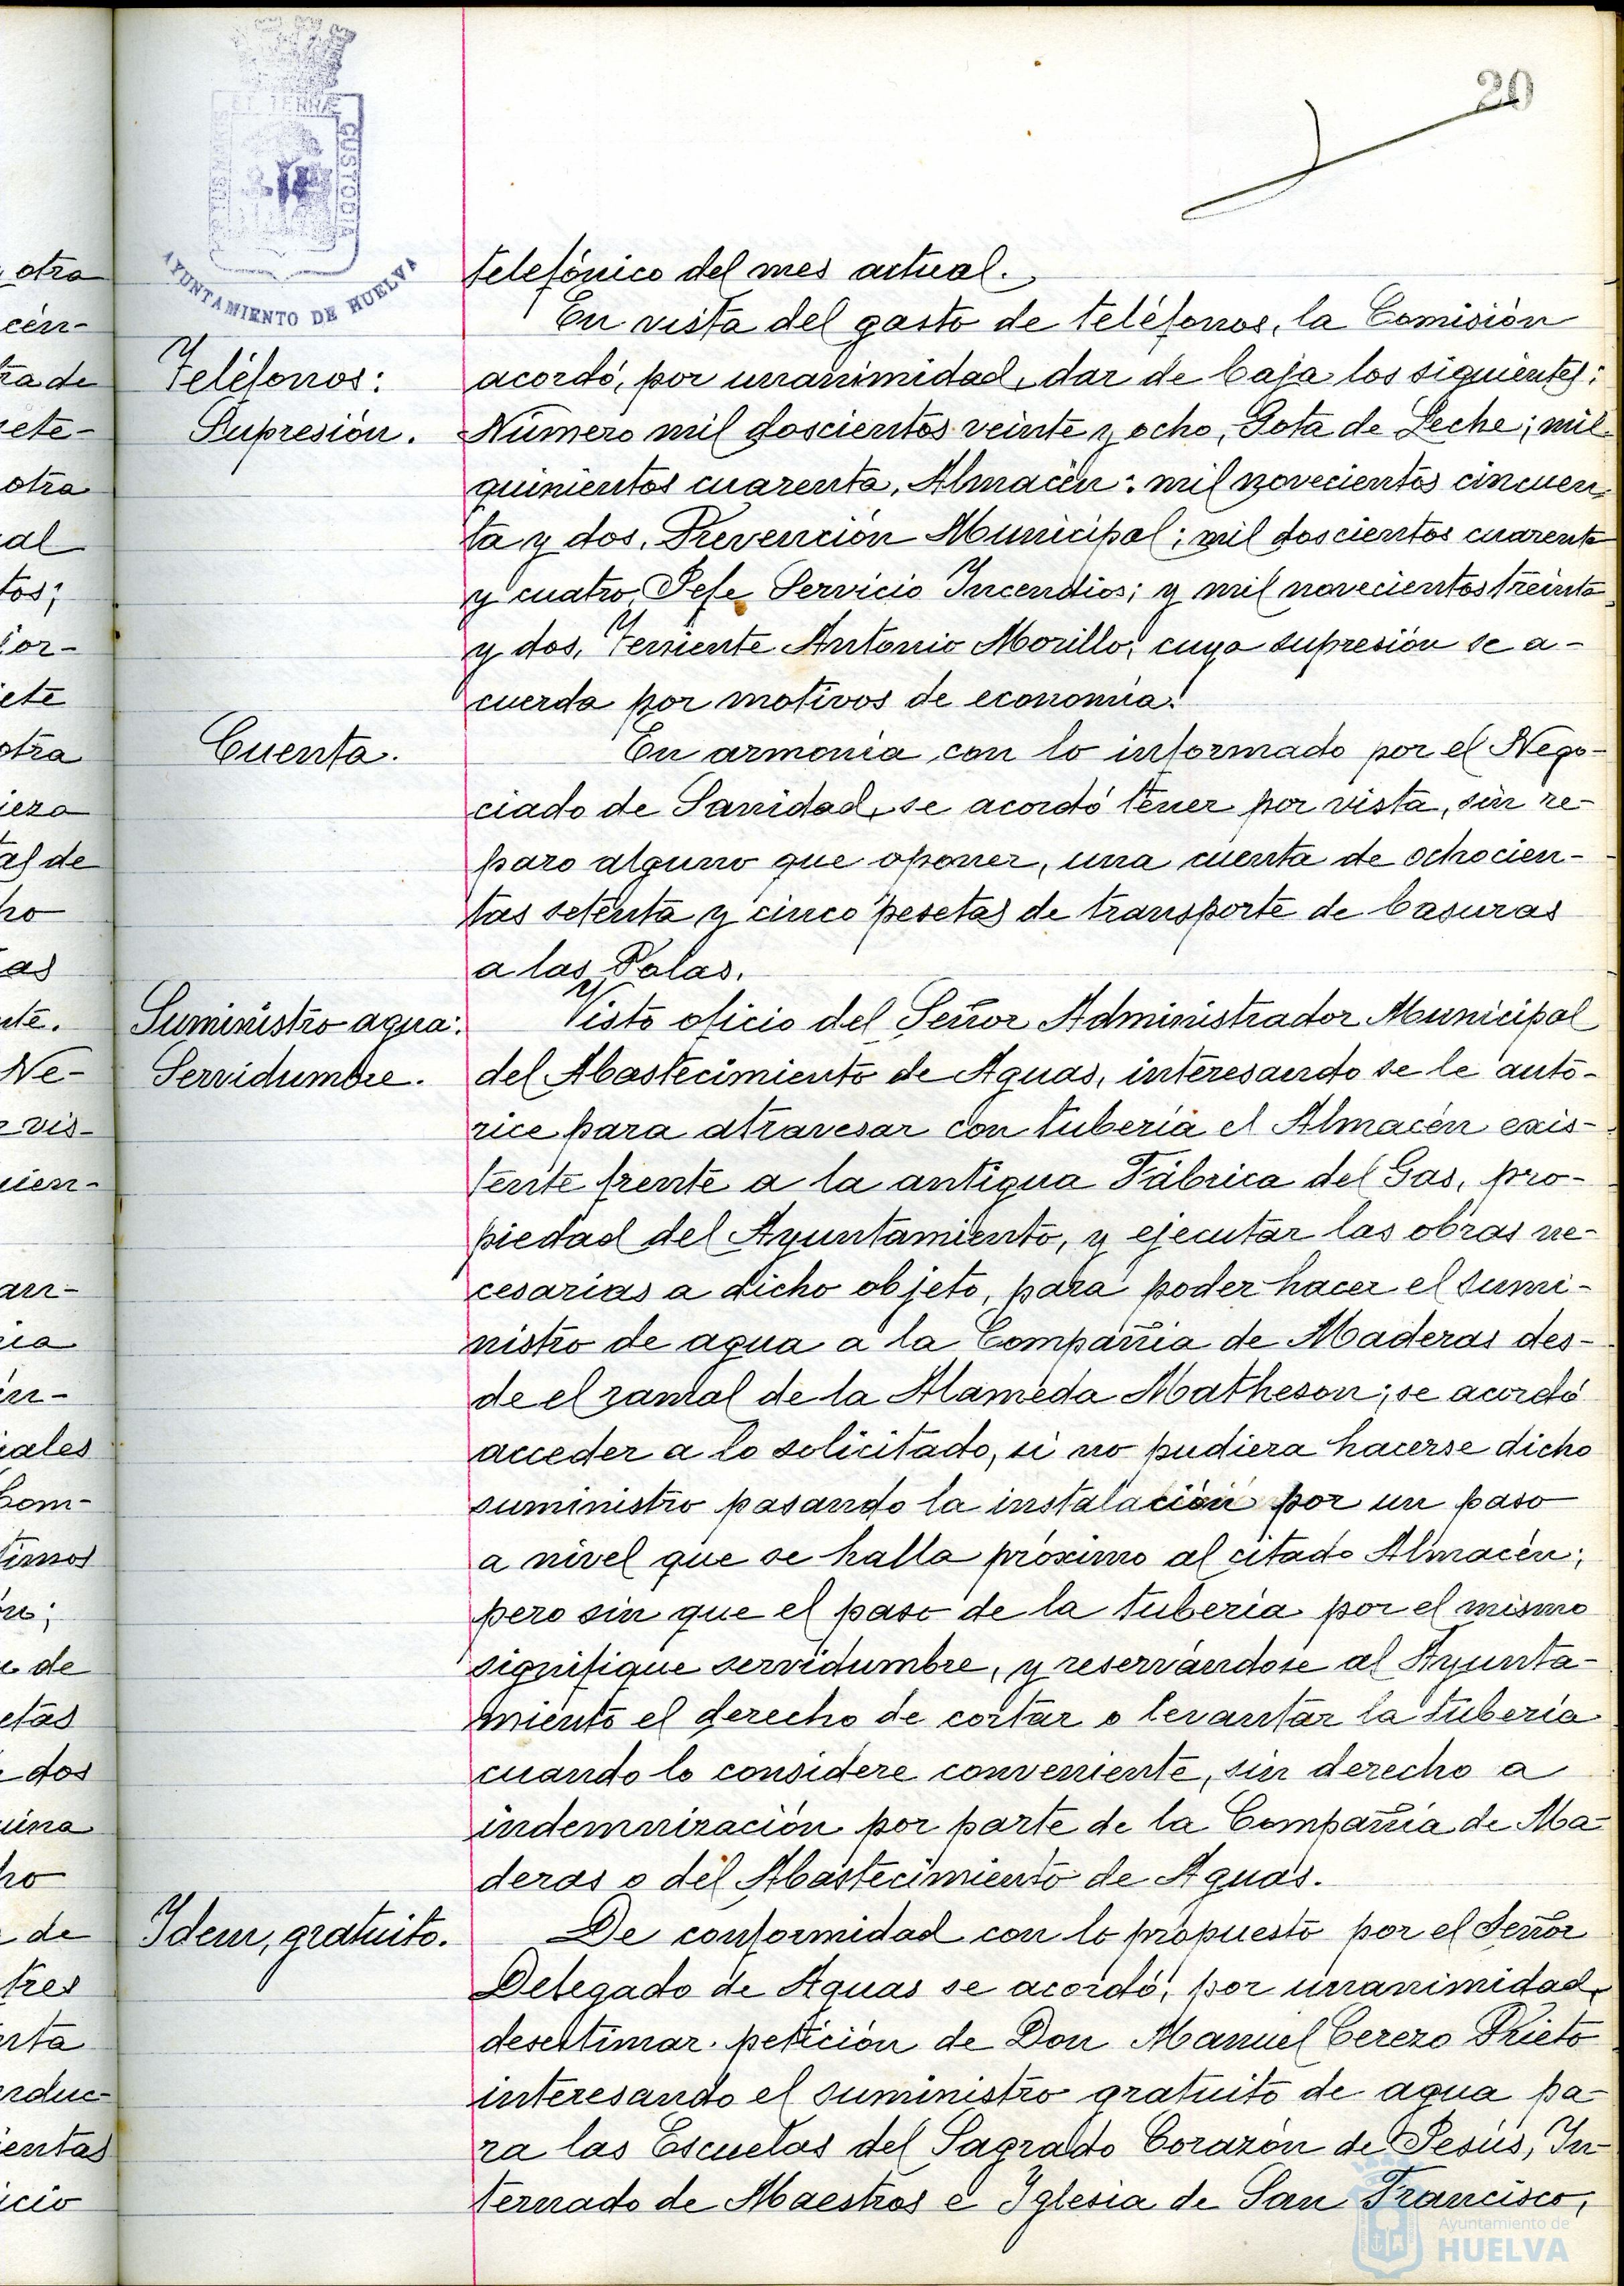 20
ET TERRÆ
CUSTODIA
AYUNTAMIENTO DE HUELVA
telefónico del mes actual.
Teléfonos:
Supresión.
En vista del gasto de teléfonos, la Comisión
acordó, por unanimidad, dar de baja los siguientes:
Número mil doscientos veinte y ocho, Gota de Leche; mil
quinientos cuarenta, Almacén; mil novecientos cincuen-
ta y dos, Prevención Municipal; mil doscientos cuarenta
y cuatro, Jefe Servicio Incendios; y mil novecientos treinta
y dos, Teniente Antonio Morillo; cuya supresión se a-
cuerda por motivos de economía.
Cuenta.
En armonía con lo informado por el Nego-
ciado de Sanidad, se acordó tener por vista, sin re-
paro alguno que oponer, una cuenta de ochocien-
tas setenta y cinco pesetas de transporte de basuras
a las Palas.
Suministro agua:
Servidumbre.
Visto oficio del Señor Administrador Municipal
del Abastecimiento de Aguas, interesando se le auto-
rice para atravesar con tubería el Almacén exis-
tente frente a la antigua Fábrica del Gas, pro-
piedad del Ayuntamiento, y ejecutar las obras ne-
cesarias a dicho objeto, para poder hacer el sumi-
nistro de agua a la Compañía de Maderas des-
de el ramal de la Alameda Matheson; se acordó
acceder a lo solicitado, si no pudiera hacerse dicho
suministro pasando la instalación por un paso
a nivel que se halla próximo al citado Almacén;
pero sin que el paso de la tubería por el mismo
signifique servidumbre, y reservándose al Ayunta-
miento el derecho de cortar o levantar la tubería
cuando lo considere conveniente, sin derecho a
indemnización por parte de la Compañía de Ma-
deras o del Abastecimiento de Aguas.
Idem, gratuito.
De conformidad con lo propuesto por el Señor
Delegado de Aguas se acordó, por unanimidad,
desestimar petición de Don Manuel Cerezo Prieto
interesando el suministro gratuito de agua pa-
ra las Escuelas del Sagrado Corazón de Jesús, In-
ternado de Maestros e Iglesia de San Francisco,
Ayuntamiento de
HUELVA